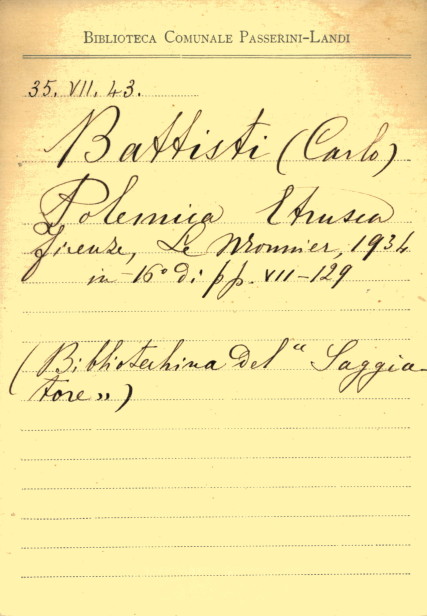 BIBLIOTECA COMUNALE PASSERINI-LANDI
35. VII. 43.
Battisti (Carlo)
Polemica Etrusca
Firenze, Le Monnier, 1934
in 16° di pp. VII-129
(Bibliotechina del "Saggia-
tore")